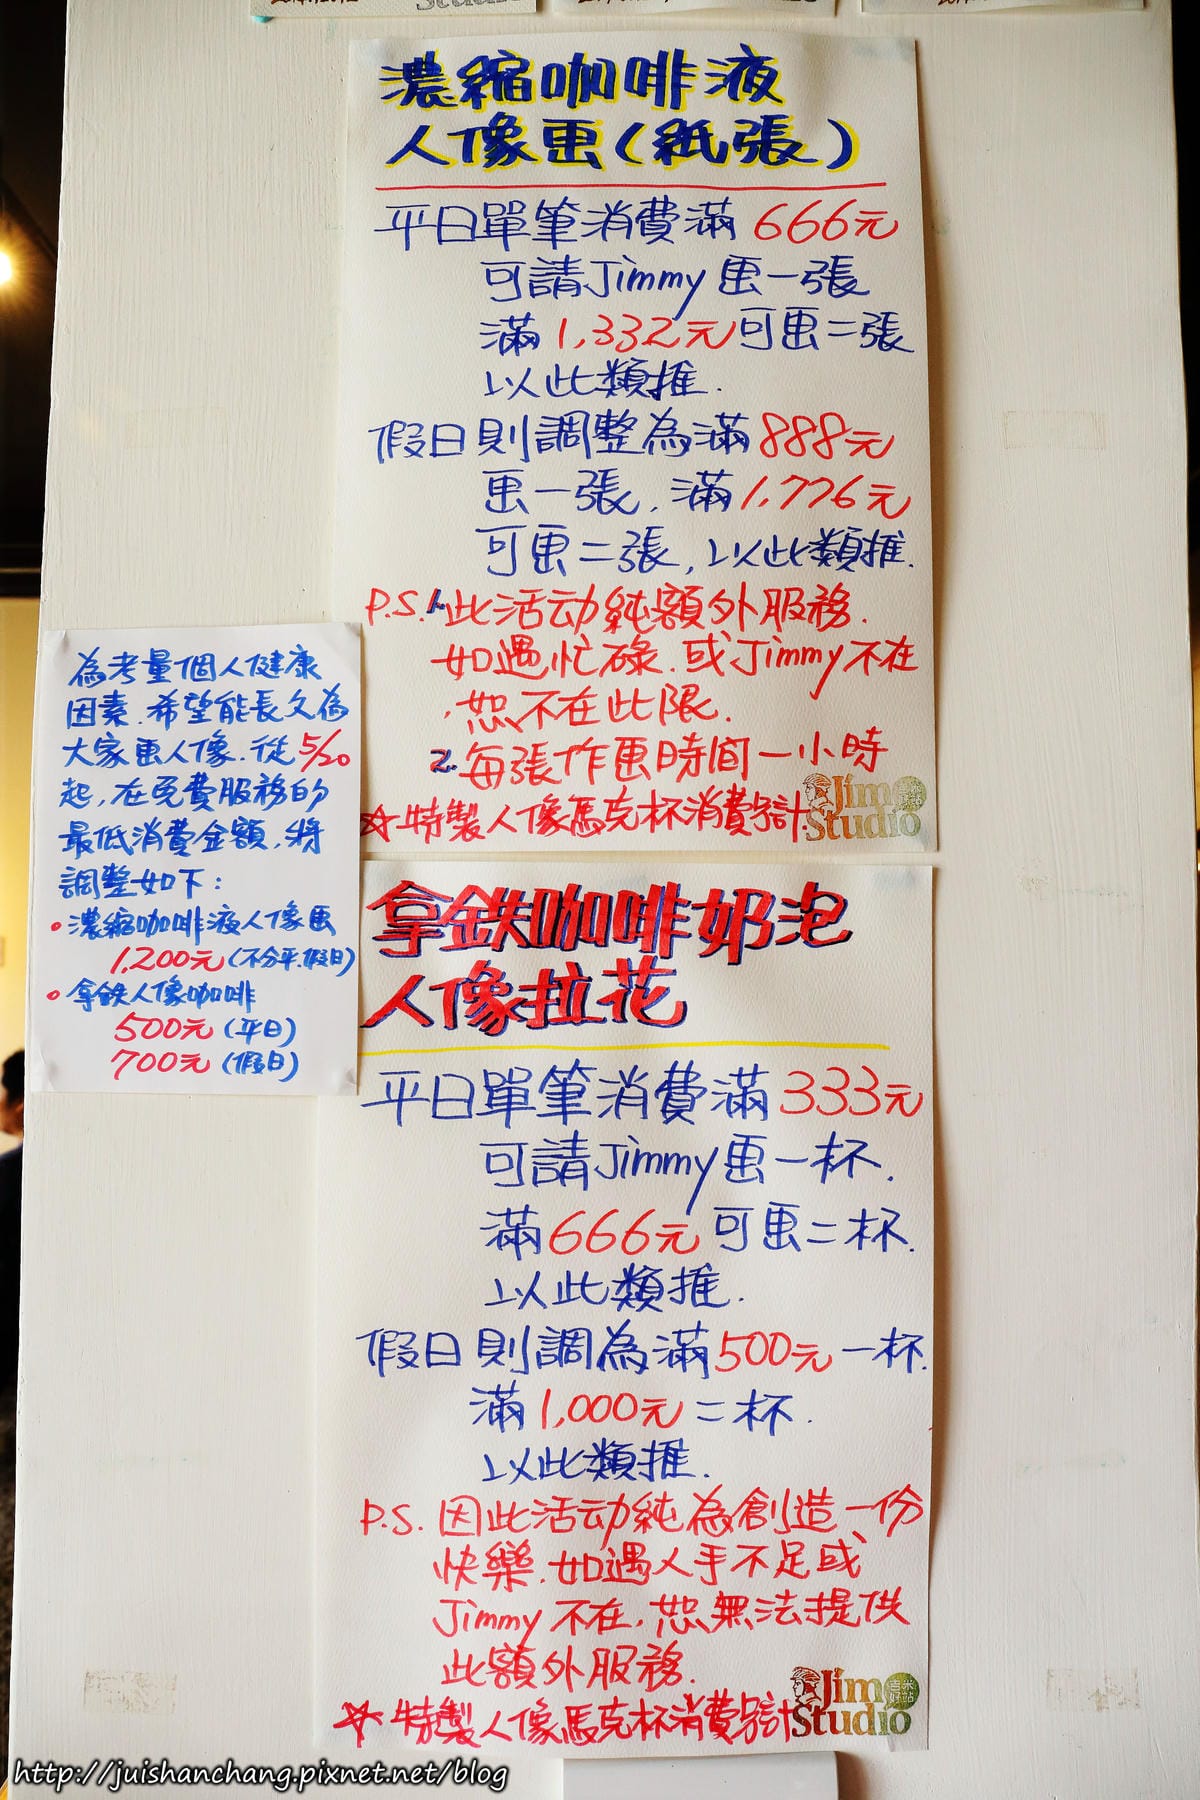 濃縮咖啡液
人像画(紙張)
平日單筆消費滿 666元
可請Jimmy画一張
滿1,332元可画二張
以此類推.
假日則調整為滿888元
画一張,滿1,776元
可画二張,以此類推.
P.S.1.此活动純額外服務.
如遇忙碌.或Jimmy不在
恕不在此限.
2.每張作画時間一小時
☆特製人像馬克杯消費另計.
Jim
Studio
為考量個人健康
因素.希望能長久為
大家画人像.從5/20
起,在免費服務的
最低消費金額,將
調整如下:
•濃縮咖啡液人像画
1,200元(不分平.假日)
•拿鉄人像咖啡
500元(平日)
700元(假日)
拿鉄咖啡奶泡
人像拉花
平日單筆消費滿333元
可請Jimmy画一杯.
滿666元可画二杯.
以此類推.
假日則調為滿500元一杯.
滿1,000元二杯.
以此類推.
P.S.因此活动純為創造一份
快樂.如遇人手不足或
Jimmy不在,恕無法提供
此額外服務.
☆特製人像馬克杯消費另計
Jim 吉米好站
Studio
http://juishanchang.pixnet.net/blog